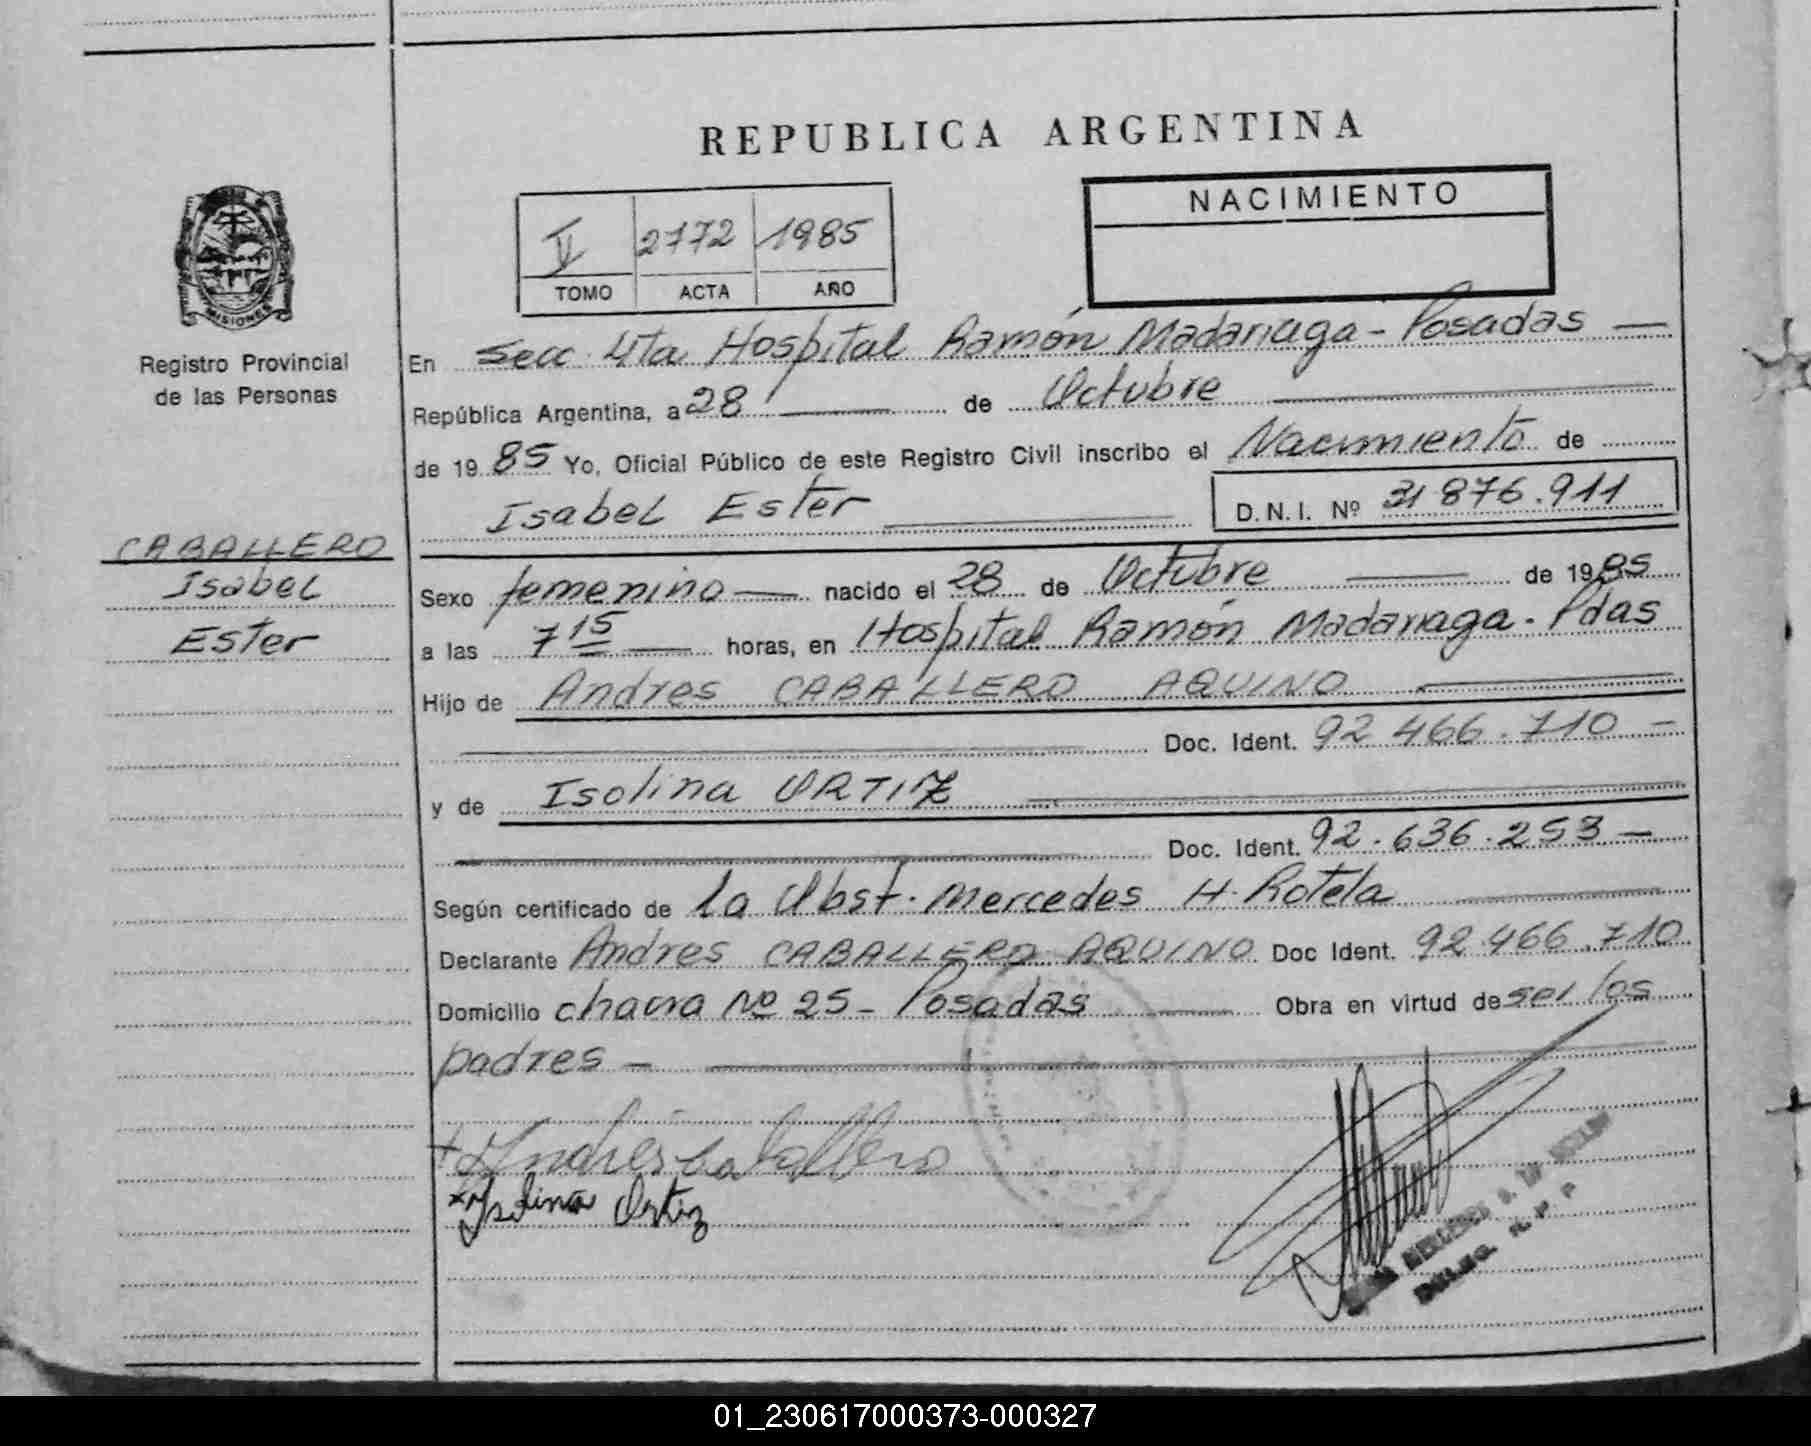 REPUBLICA ARGENTINA
NACIMIENTO
V 2772 1985
TOMO ACTA AÑO
MISIONES
Registro Provincial
de las Personas
En Secc. 4ta Hospital Ramón Madariaga - Posadas —
República Argentina, a 28 — de Octubre —
de 19 85 Yo, Oficial Público de este Registro Civil inscribo el Nacimiento de
Isabel Ester — D.N.I. Nº 31 876.911
CABALLERO
Isabel
Ester
Sexo femenino — nacido el 28 de Octubre — de 19 85
a las 7 15 — horas, en Hospital Ramón Madariaga. Pdas
Hijo de Andres CABALLERO AQUINO —
Doc. Ident. 92 466.710 —
y de Isolina ORTIZ —
Doc. Ident. 92.636.253 —
Según certificado de la Obst. Mercedes H. Rotela —
Declarante Andres CABALLERO AQUINO Doc Ident. 92.466.710
Domicilio chacra Nº 25 - Posadas — Obra en virtud de ser los
padres —
+ Andres Caballero
x Isolina Ortiz
01_230617000373-000327